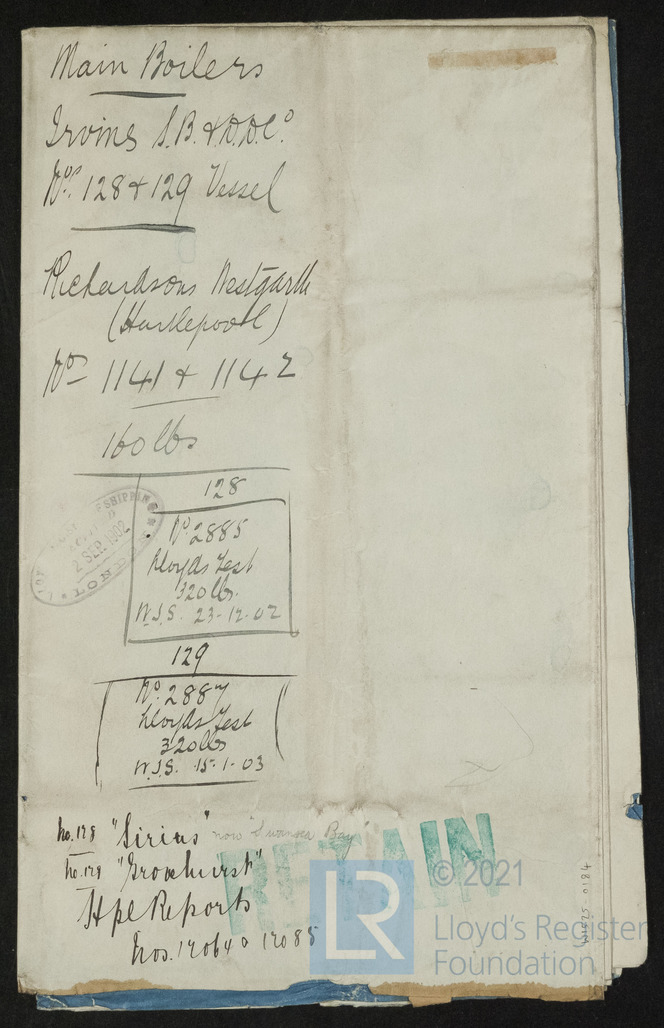 Main Boilers
Irvines S.B. & D.D. Co
Nos. 128 & 129 Vessel
Richardsons Westgarth
(Hartlepool)
No 1141 & 1142
160 lbs
128
No 2885
Lloyds Test
320 lbs.
W.J.S. 23-12-02
129
No. 2887
Lloyds Test
320 lbs
W.J.S. 15-1-03
SHIPPING
2 SEP. 1902
LONDON
No. 128 "Sirius" now "Swansea Bay"
No. 129 "Grovehurst"
Hpl Reports
Nos. 12064 & 12085
RETAIN
W1925-0184
LR
© 2021
Lloyd's Register
Foundation